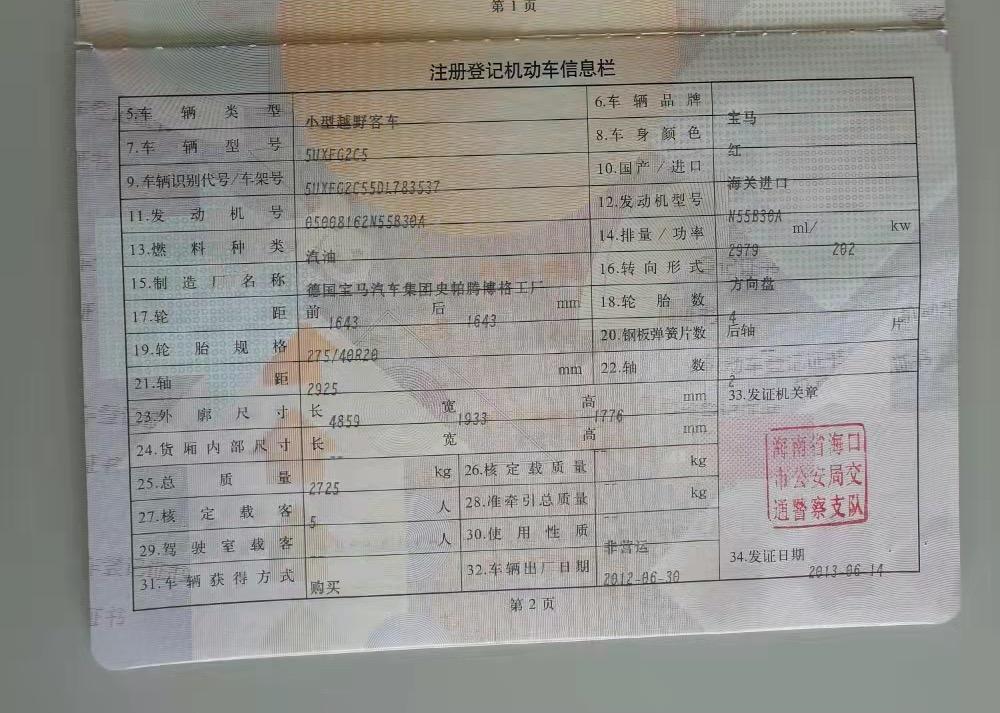 第1页
注册登记机动车信息栏
5.车辆类型 小型越野客车 6.车辆品牌 宝马
7.车辆型号 5UXFG2C5 8.车身颜色 红
9.车辆识别代号/车架号 5UXFG2C55DL783537 10.国产/进口 海关进口
11.发动机号 05008162N55B30A 12.发动机型号 N55B30A
13.燃料种类 汽油 14.排量/功率 2979 ml/ 202 kw
15.制造厂名称 德国宝马汽车集团史帕腾博格工厂 16.转向形式 方向盘
17.轮距 前 1643 后 1643 mm 18.轮胎数 4
19.轮胎规格 275/40R20 20.钢板弹簧片数 后轴 片
21.轴距 2925 mm 22.轴数 2
23.外廓尺寸 长 4859 宽 1933 高 1776 mm 33.发证机关章
24.货厢内部尺寸 长 -- 宽 高 mm
25.总质量 2725 kg 26.核定载质量 -- kg
海南省海口
市公安局交
通警察支队
27.核定载客 5 人 28.准牵引总质量 -- kg
29.驾驶室载客 人 30.使用性质 非营运
31.车辆获得方式 购买 32.车辆出厂日期 2012-06-30 34.发证日期 2013-06-14
第2页